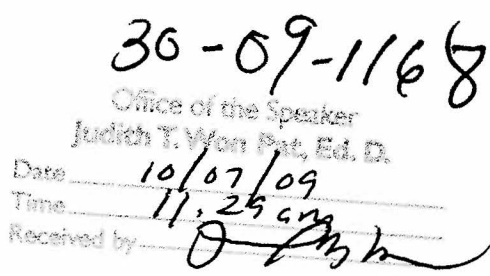 30-09-1168
Office of the Speaker
Judith T. Won Pat, Ed. D.
Date 10/07/09
Time 11:29 am
Received by